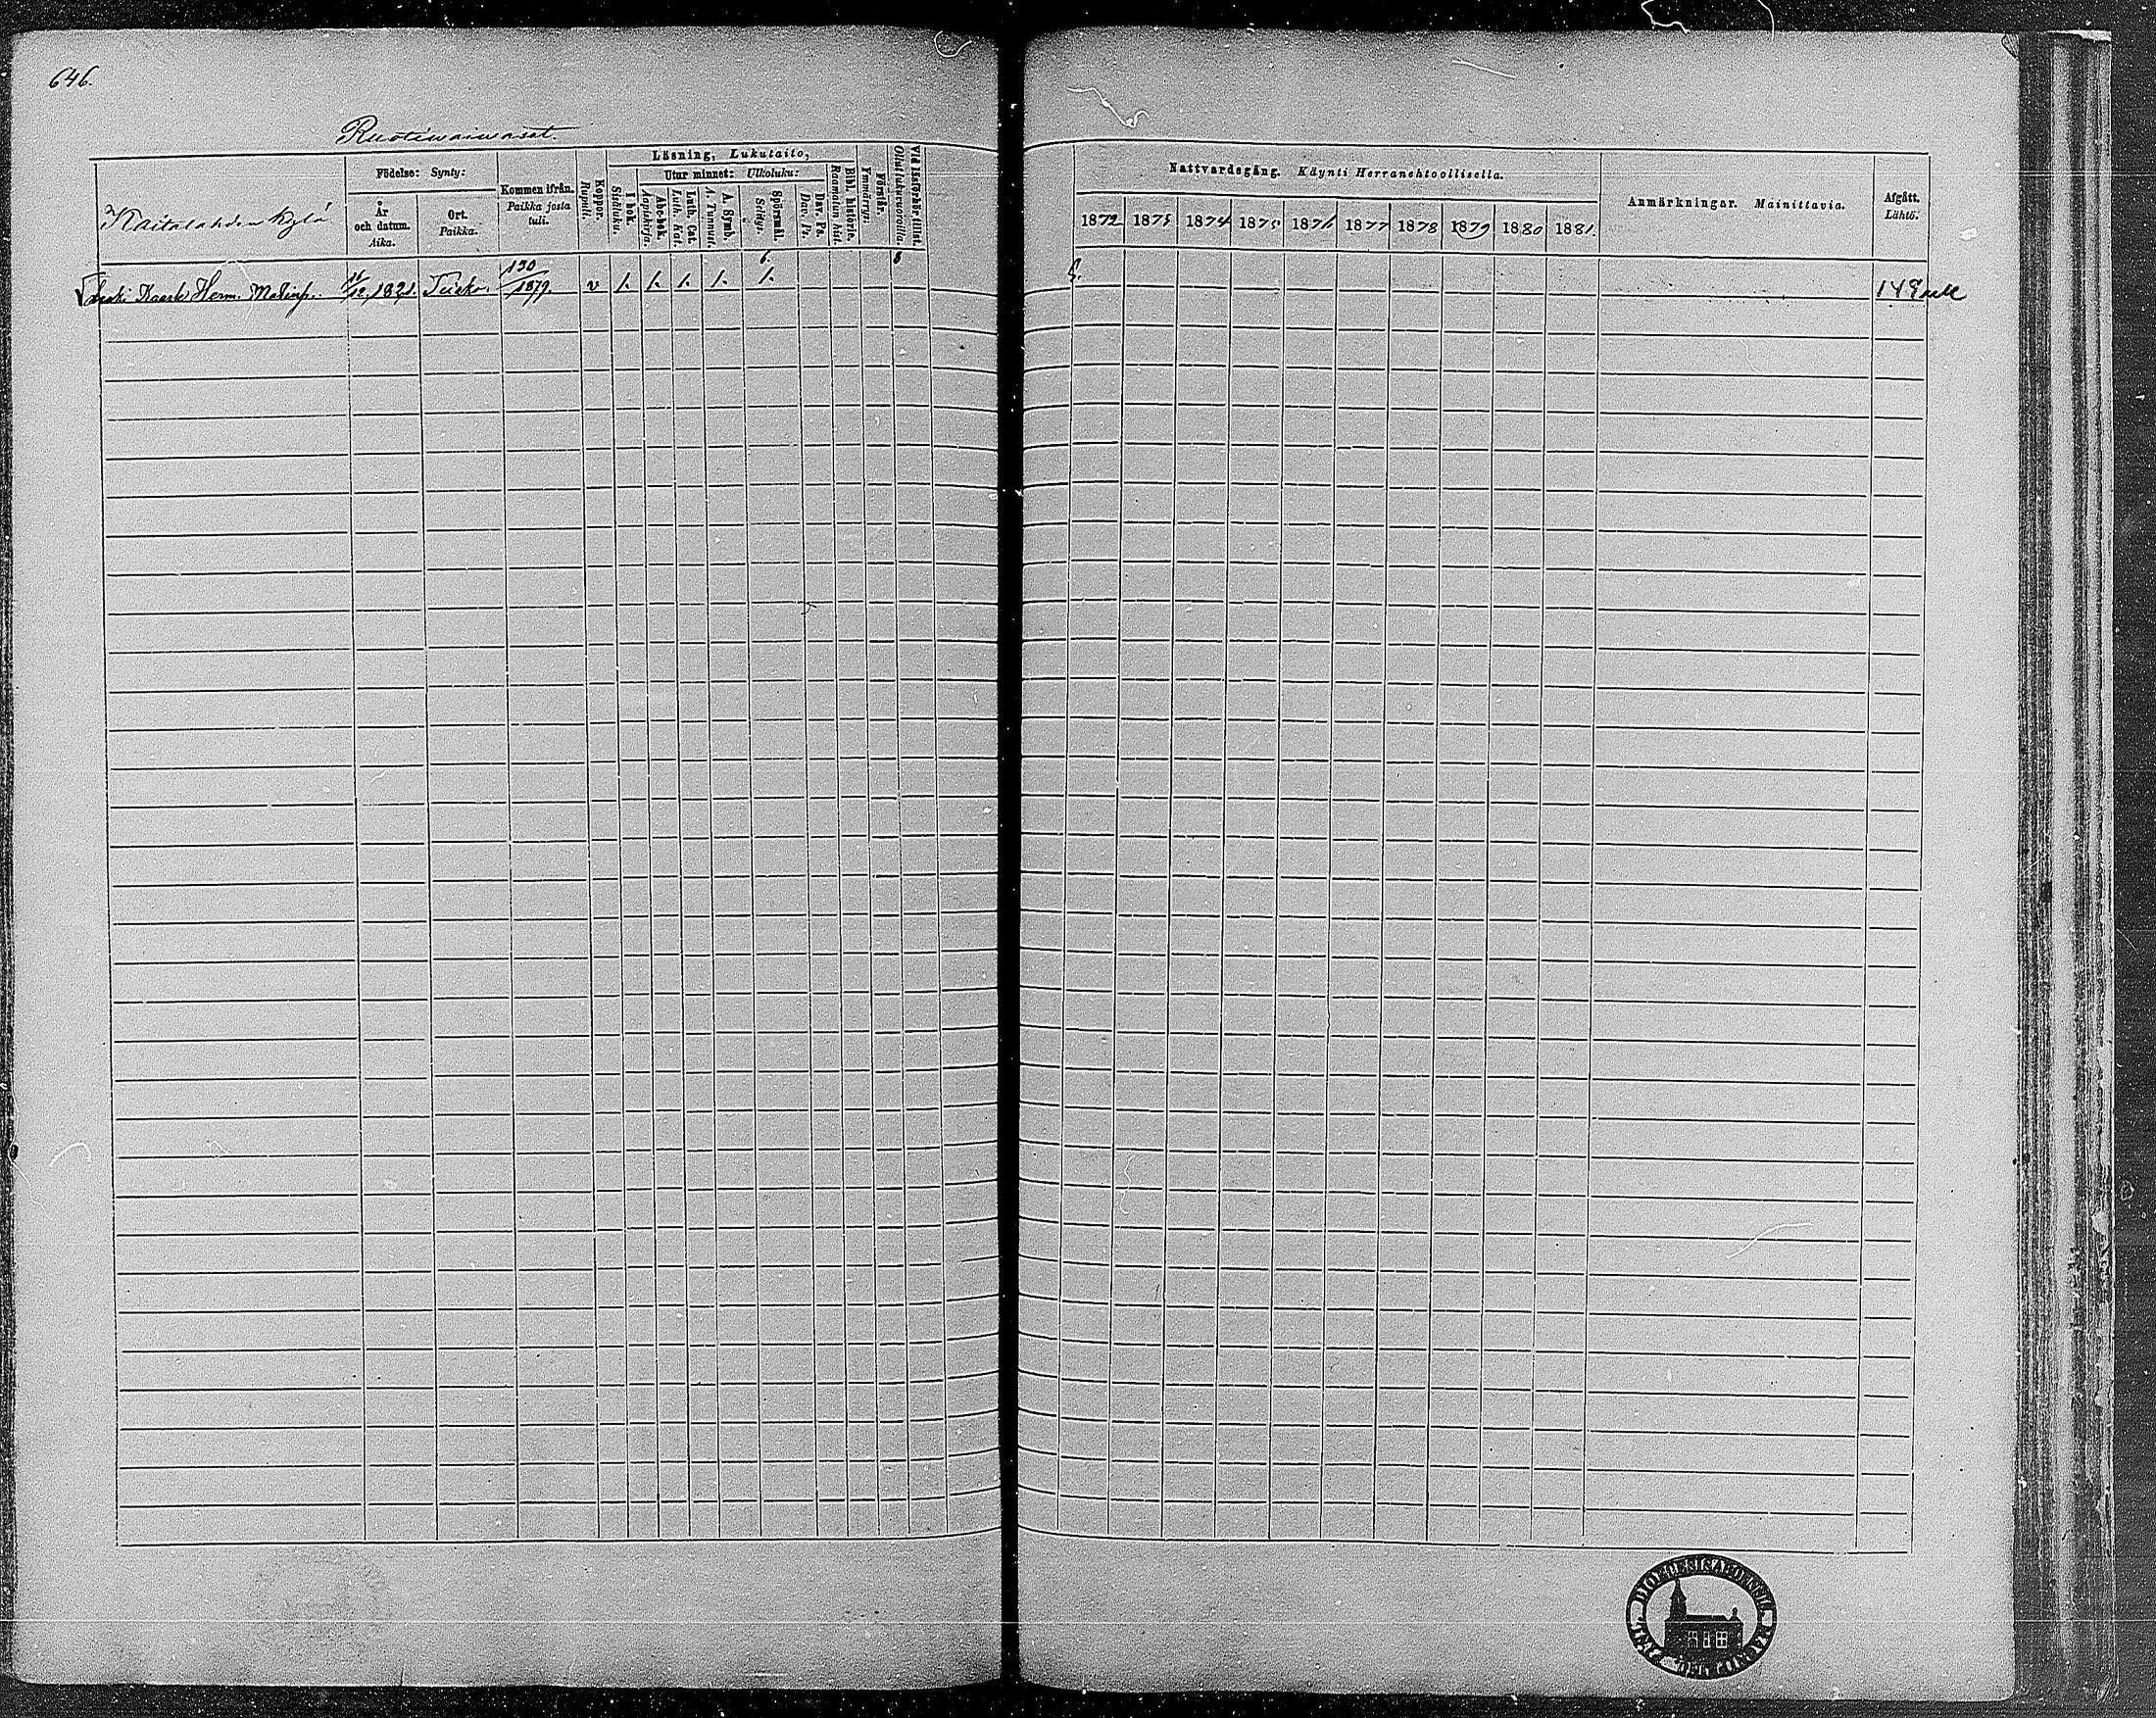 646.
Ruotiwaiwaset.
Kaitalahden kylä
Födelse: Synty:
År och datum. Aika.
Ort. Paikka.
Kommen ifrån. Paikka josta tuli.
Koppor. Rupuli.
Läsning, Lukutaito,
I bok. Sisäluku.
Utur minnet: Ulkoluku:
Abc-bok. Aapiskirja.
Luth. Cat. Luth. Kat.
A. Symb. A. Tunnust.
Spörsmål. Selitys.
Dav. Ps. Dav. Ps.
Bibl. historie. Raamatun hist.
Förstår. Ymmärrys.
Vid läsförhör tillst. Ollut lukuvuoroilla.
Nattvardsgång. Käynti Herranehtoollisella.
1872 1873 1874 1875 1876 1877 1878 1879 1880 1881.
Anmärkningar. Mainittavia.
Afgått. Lähtö.
Kaarle Herm. Matinp. /12, 1821. Teisko. 130/1879. v 1. 1. 1. 1. 6. 1. 8
149